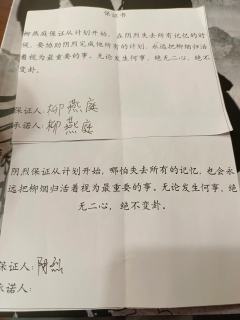 保证书
柳燕庭保证从计划开始，在阴烈失去所有记忆的时
候，要协助阴烈完成他所有的计划，永远把柳烟归活
着视为最重要的事。无论发生何事，绝无二心，绝不
变卦。
保证人：柳燕庭
承诺人：柳燕庭
阴烈保证从计划开始，哪怕失去所有的记忆，也会永
远把柳烟归活着视为最重要的事。无论发生何事，绝
无二心，绝不变卦。
保证人：阴烈
承诺人：